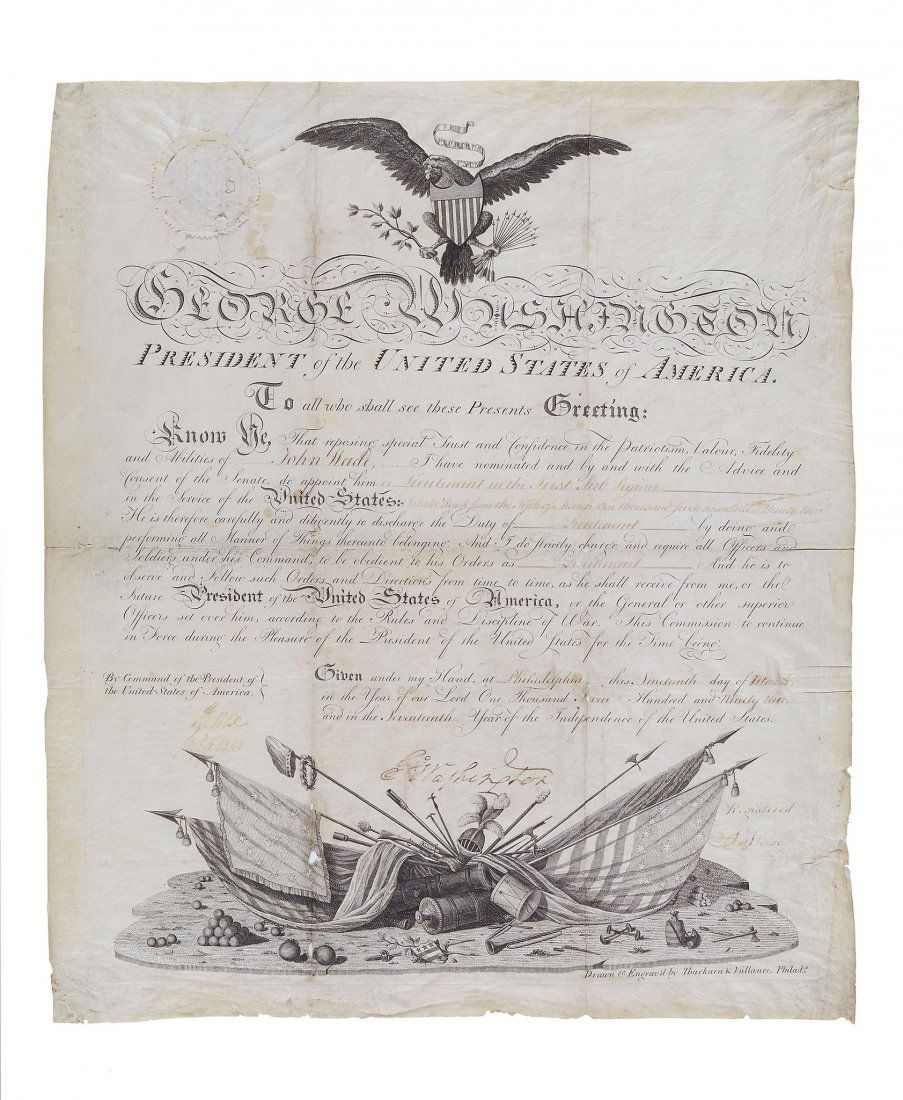 E PLURIBUS UNUM
GEORGE WASHINGTON
PRESIDENT of the UNITED STATES of AMERICA.
To all who shall see these Presents Greeting:
Know Ye, That reposing special Trust and Confidence in the Patriotism, Valour, Fidelity
and Abilities of John Wade, I have nominated and by and with the Advice and
Consent of the Senate, do appoint him a Lieutenant in the First Sub Legion
in the Service of the United States: to take Rank from the of March One thousand seven hundred & Ninety two
He is therefore carefully and diligently to discharge the Duty of Lieutenant by doing and
performing all Manner of Things thereunto belonging. And I do strictly charge and require all Officers and
Soldiers under his Command, to be obedient to his Orders as Lieutenant And he is to
observe and follow such Orders and Directions from time to time, as he shall receive from me, or the
future President of the United States of America, or the General or other superior
Officers set over him, according to the Rules and Discipline of War. This Commission to continue
in Force during the Pleasure of the President of the United States for the Time being.
By Command of the President of
the United States of America.
Given under my Hand, at Philadelphia this Nineteenth day of March
in the Year of our Lord One Thousand Seven Hundred and Ninety
and in the Seventeenth Year of the Independence of the United States.
HKnox
Go Washington
Registered
Drawn & Engrav'd by Thackara & Vallance, Philada.